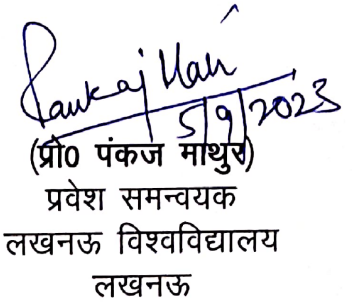 Pankaj
5/9/2023
(प्रो0 पंकज माथुर)
प्रवेश समन्वयक
लखनऊ विश्वविद्यालय
लखनऊ